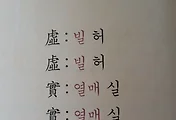 虛 : 빌 허
虛 : 빌 허
實 : 열매 실
實 : 열매 실